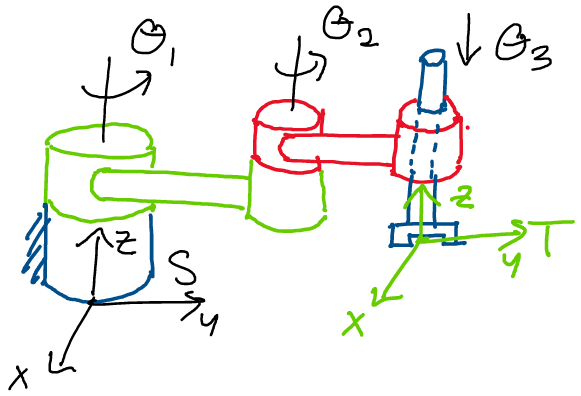 θ₁
θ₂
θ₃
z
S
y
x
z
T
y
x